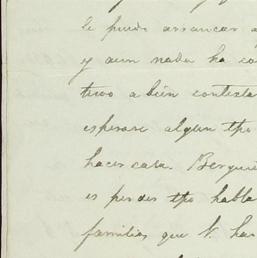 le puedo arrancar
y aun nada ha co
tuvo a bien contesta
esperase algun tpo
hacer casa. Bergui
es perder tpo habla
familias que V. har